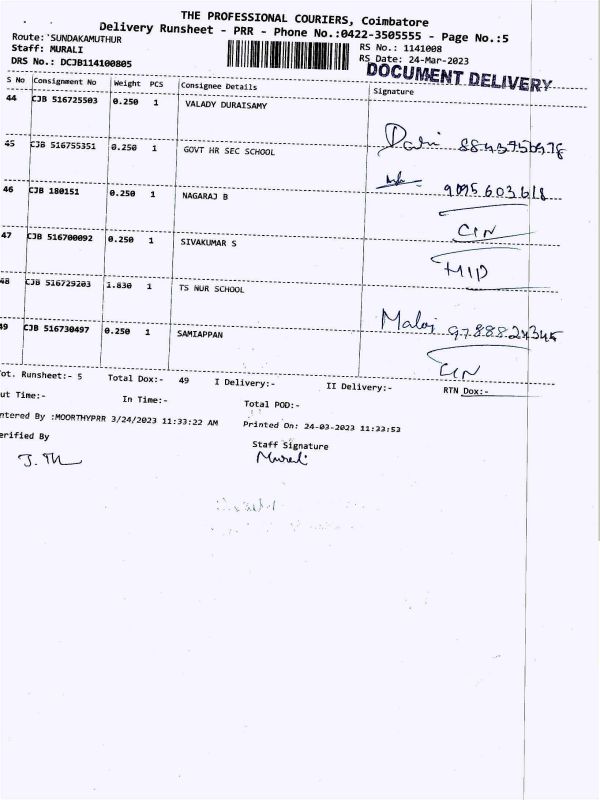 THE PROFESSIONAL COURIERS, Coimbatore
Delivery Runsheet - PRR - Phone No.:0422-3505555 - Page No.:5
Route:`SUNDAKAMUTHUR
Staff: MURALI
DRS No.: DCJB114100805
RS No.: 1141008
RS Date: 24-Mar-2023
DOCUMENT DELIVERY
S No Consignment No Weight PCS Consignee Details Signature
44 CJB 516725503 0.250 1 VALADY DURAISAMY
45 CJB 516755351 0.250 1 GOVT HR SEC SCHOOL
46 CJB 180151 0.250 1 NAGARAJ B
CIN
47 CJB 516700092 0.250 1 SIVAKUMAR S
48 CJB 516729203 1.830 1 TS NUR SCHOOL
49 CJB 516730497 0.250 1 SAMIAPPAN
CIN
ot. Runsheet:- 5 Total Dox:- 49 I Delivery:- II Delivery:- RTN Dox:-
ut Time:- In Time:- Total POD:-
ntered By :MOORTHYPRR 3/24/2023 11:33:22 AM Printed On: 24-03-2023 11:33:53
erified By Staff Signature
Murali